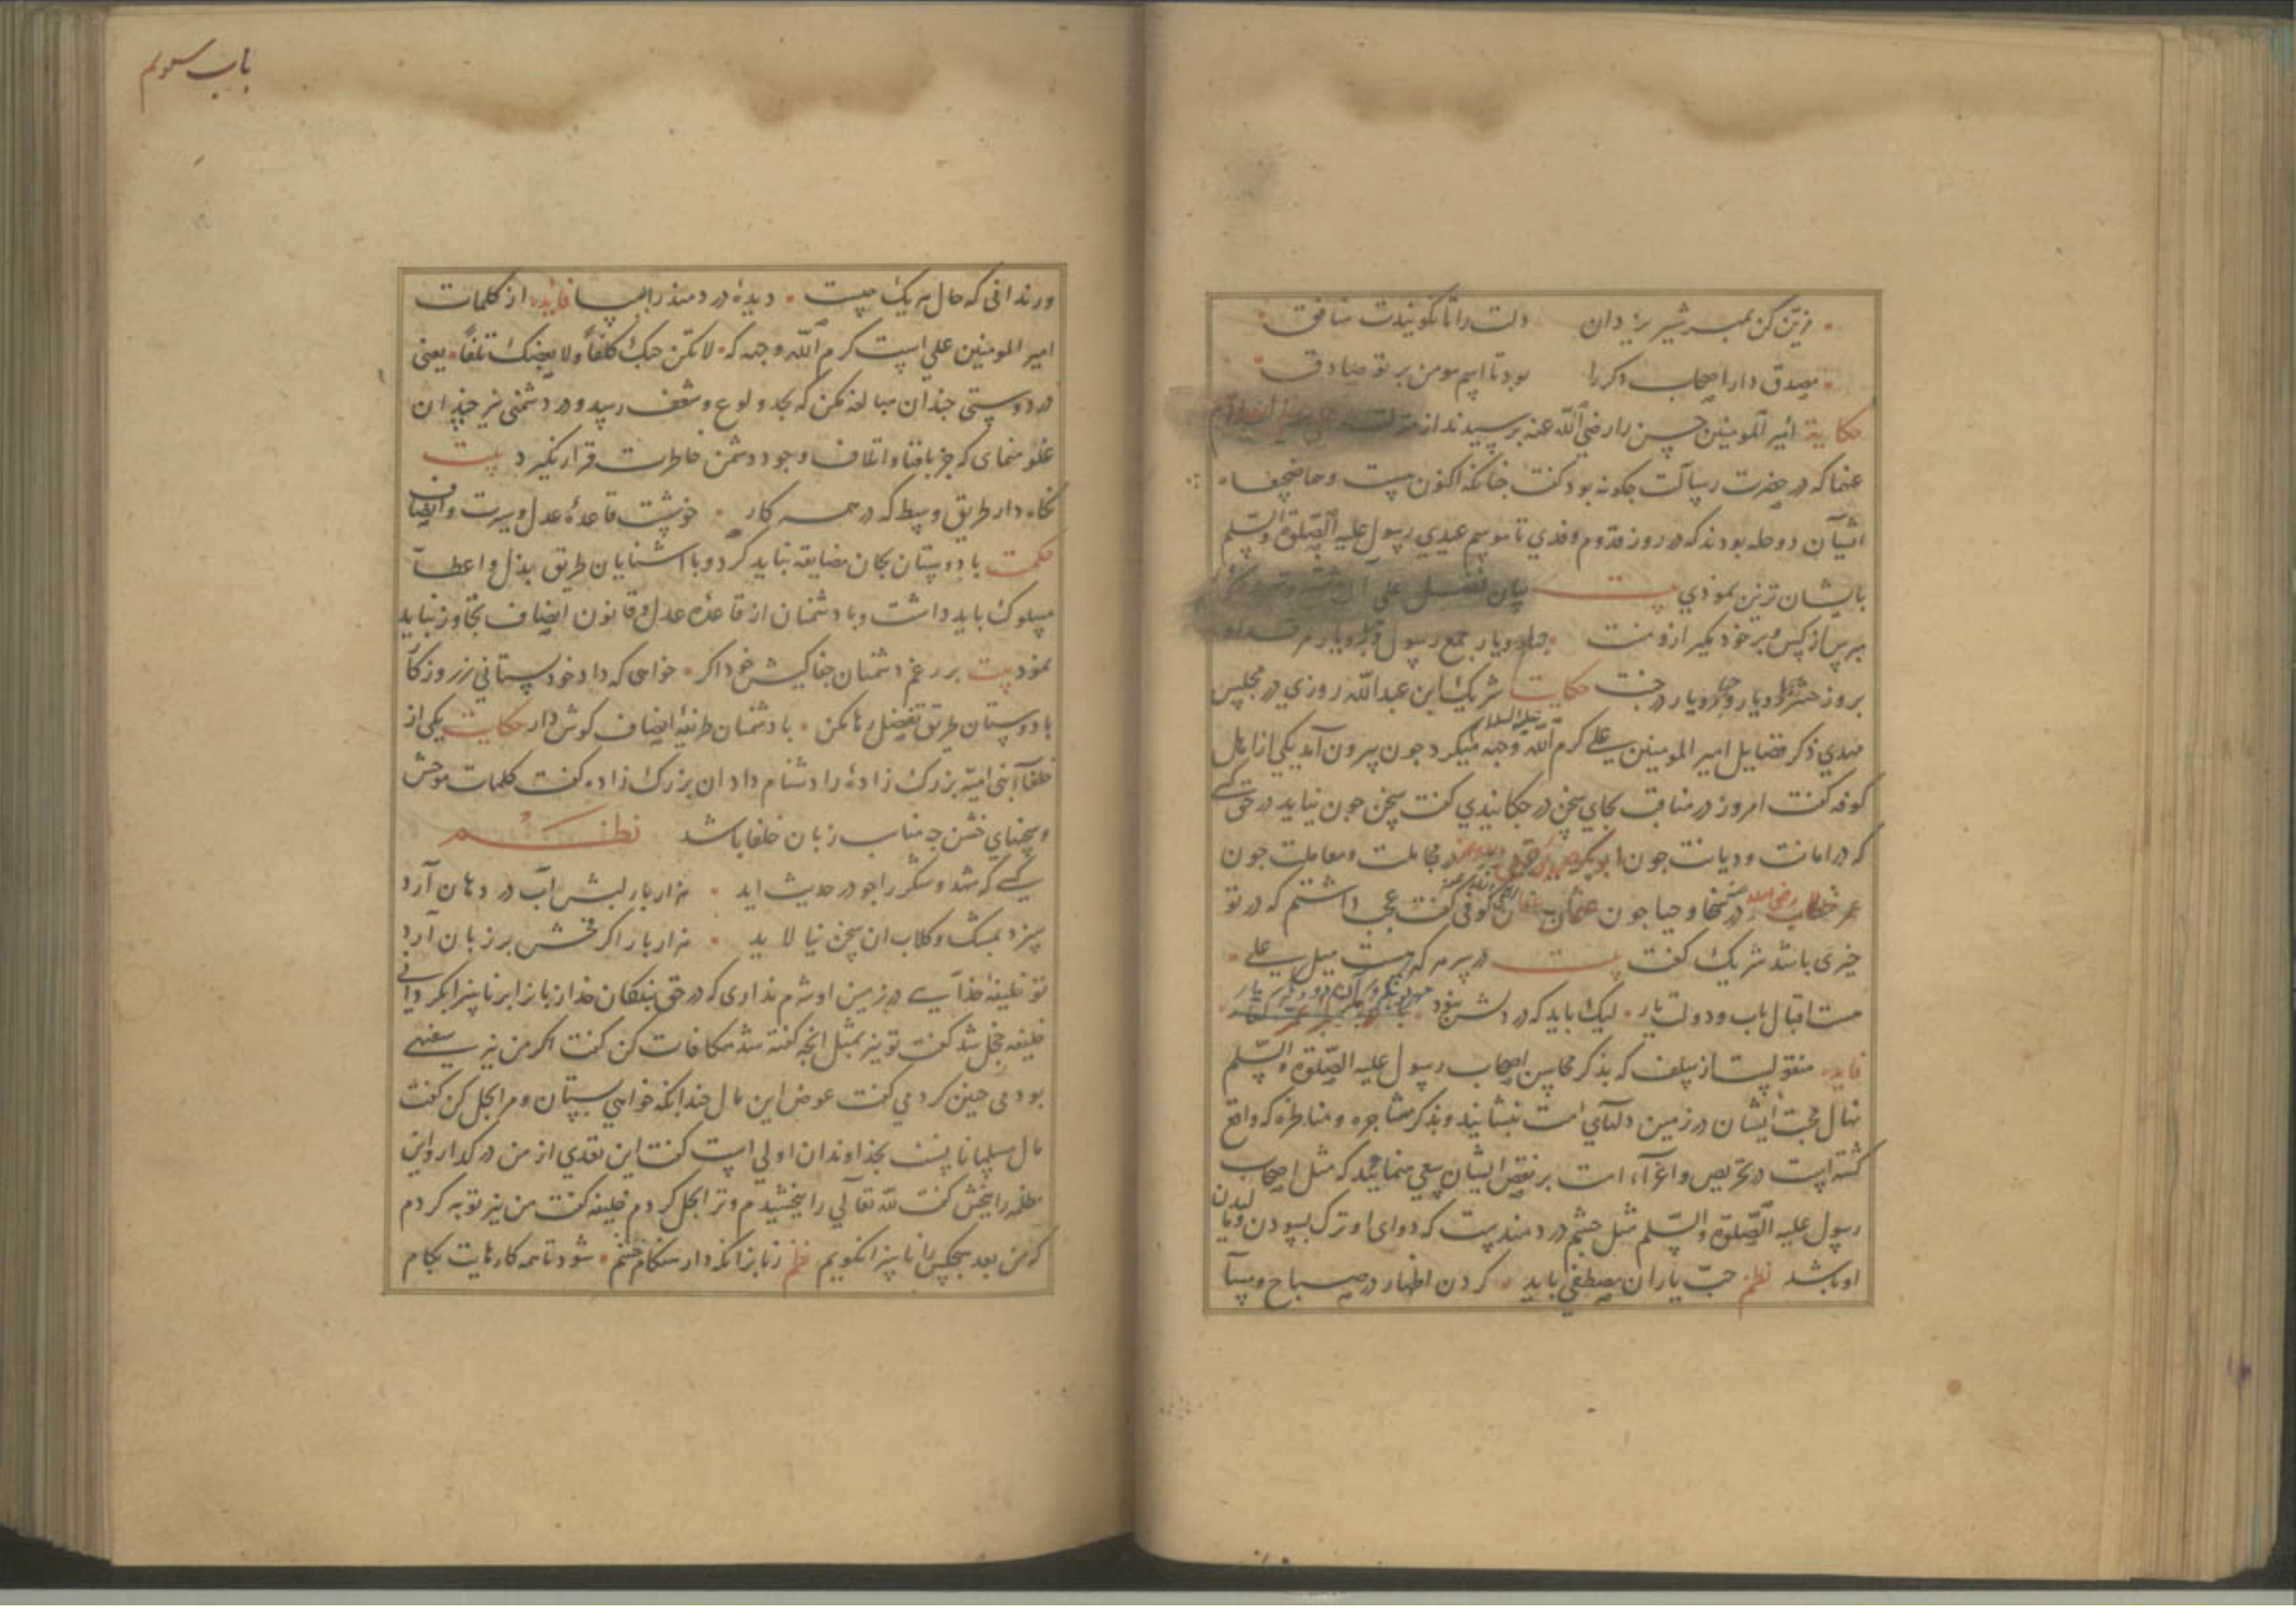 مزین کن بمهر شیر یزدان دلت را تا نکویندت منافق
مصدق دار اصحاب دکر را بود تا اسم مومن بر تو صادق
حکایة امیر المومنین حسن را رضی الله عنه پرسیدند از منزلت
عنهما که در حضرت رسالت جکونه بود کفت جنانکه اکنون هست و هما ضجیعاه
ایشان دو حله بودند که در روز قدوم وفدی تا موسم عیدی رسول علیه الصلوة والسلم
بایشان تزین نمودی بیت
بپرس از کس و بر خود مکیر ازو منت جهار یار جمع رسول
بروز حشر دو یار و دو یار در جنت حکایت شریک ابن عبدالله روزی در مجلس
مهدی ذکر فضایل امیر المومنین علی کرم الله وجهه میکرد جون بیرون آمد یکی از اهل
علیه السلام
کوفه کفت امروز در مناقب بجای سخن در جکانیدی کفت سخن جون نیاید در حق کسی
که در امانت و دیانت جون ابوبکر در مجاملت و معاملت جون
عمر خطاب رضی الله در سخا و حیا جون عثمان کوفی کفت عجب داشتم که در تو
خیری باشد شریک کفت بیت در سر هر که هست میل علی
هست اقبال باب و دولت یار لیک باید که در دلش نبود
فایده منقولست از سلف که بذکر محاسن اصحاب رسول علیه الصلوة والسلم
نهال محبت ایشان در زمین دلهای امت بنشانید و بذکر مشاجره و مناظره که واقع
کشته است در تحریص و اغراء امت بر نقص ایشان سعی منمایید که مثل اصحاب
رسول علیه الصلوة والسلم مثل جشم دردمندیست که دوای او ترک بسودن و یا لیدن
او باشد نظم حب یاران مصطفی باید کردن اظهار در صباح و مسا
باب سوم
ور ندانی که حال هر یک چیست دیدهٔ دردمند را بمسا فایده از کلمات
امیر المومنین علی است کرم الله وجهه که لا تکن حبک کلفاً ولا بغضک تلفاً یعنی
در دوستی جندان مبالغه مکن که بحد ولوع و شغف رسد و در دشمنی نیز جندان
غلو منمای که جز بافنا و اتلاف وجود دشمن خاطرت قرار نکیرد بیت
نکاه دار طریق وسط که در همه کار خوشست قاعدهٔ عدل و سیرت و انصاف
حکمت با دوستان بجان مضایقه نباید کرد و با اشنایان طریق بذل و اعطا
مسلوک باید داشت و با دشمنان از قاعدهٔ عدل و قانون انصاف تجاوز نباید
نمود بیت بر رغم دشمنان جفاکیش خود اکر خواهی که داد خود بستانی ز روزکار
با دوستان طریق تفضل رها مکن با دشمنان طریقهٔ انصاف کوش دار حکایت یکی از
خلفاء بنی امیه بزرک زادهٔ را دشنام داد ان بزرک زاده کفت کلمات موحش
و سخنهای خشن جه مناسب زبان خلفا باشد نظم
کسی که شهد و شکر را جو در حدیث اید هزار بار لبش آب در دهان آرد
سزد بمشک و کلاب ان سخن نیالاید هزار بار اکر فحش بر زبان آرد
تو خلیفهٔ خدایی در زمین او شرم نداری که در حق بندکان خدا زبانرا بر ناسزا بکردانی
خلیفه خجل شد کفت تو نیز بمثل انجه کفته شد مکافات کن کفت اکر من نیز سفیه
بودمی جنین کردمی کفت عوض این مال جندانکه خواهی بستان و مرا بحل کن کفت
مال مسلمانانست بخداوندان اولی است کفت این نقدی از من در کذار و این
مظلمه را ببخش کفت لله تعالی را بخشیدم و ترا بحل کردم خلیفه کفت من نیز توبه کردم
که من بعد هیجکس را ناسزا نکویم نظم زبانرا نکه دار هنکام خشم شود تا همه کارهایت بکام